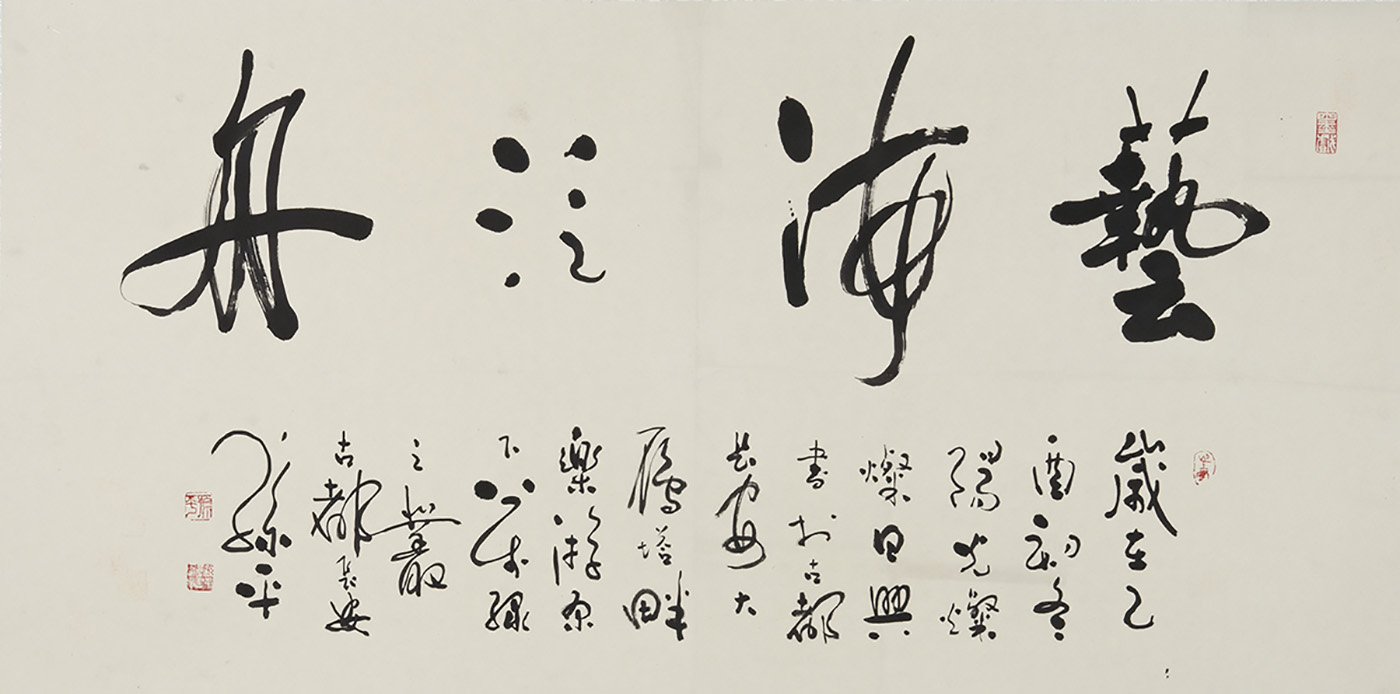 藝海泛舟
歲在乙
酉初冬
陽光燦
燦日興
書於古都
長安大
雁塔畔
樂游原
下綠
之叢
古都長安
孫平